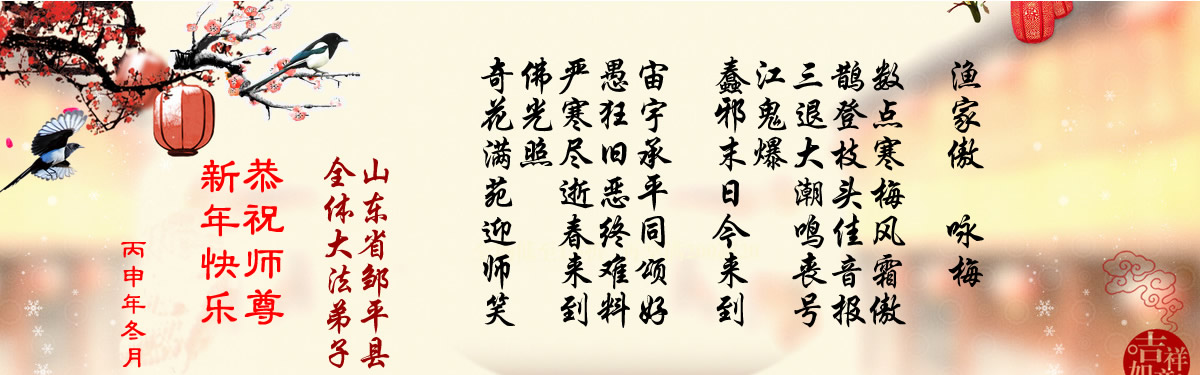 渔家傲 咏梅
数点寒梅风霜傲
鹊登枝头佳音报
三退大潮鸣丧号
江鬼爆
蠢邪末日今来到
宙宇承平同颂好
愚狂旧恶终难料
严寒尽逝春来到
佛光照
奇花满苑迎师笑
山东省邹平县
全体大法弟子
恭祝师尊
新年快乐
丙申年冬月
吉祥